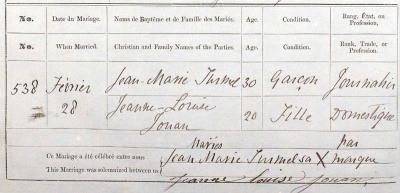 No. Date du Mariage. Noms de Baptême et de Famille des Mariés. Age. Condition. Rang, État, ou Profession.
No. When Married. Christian and Family Names of the Parties Age. Condition. Rank, Trade, or Profession.
538 Février 28 Jean-Marie Turmel 30 Garçon Journalier
Jeanne-Louise Jouan 20 Fille Domestique
Mariés par
Ce Mariage a été célébré entre nous Jean Marie Turmel sa X marque
This Marriage was solemnized between us Jeanne Louise Jouan